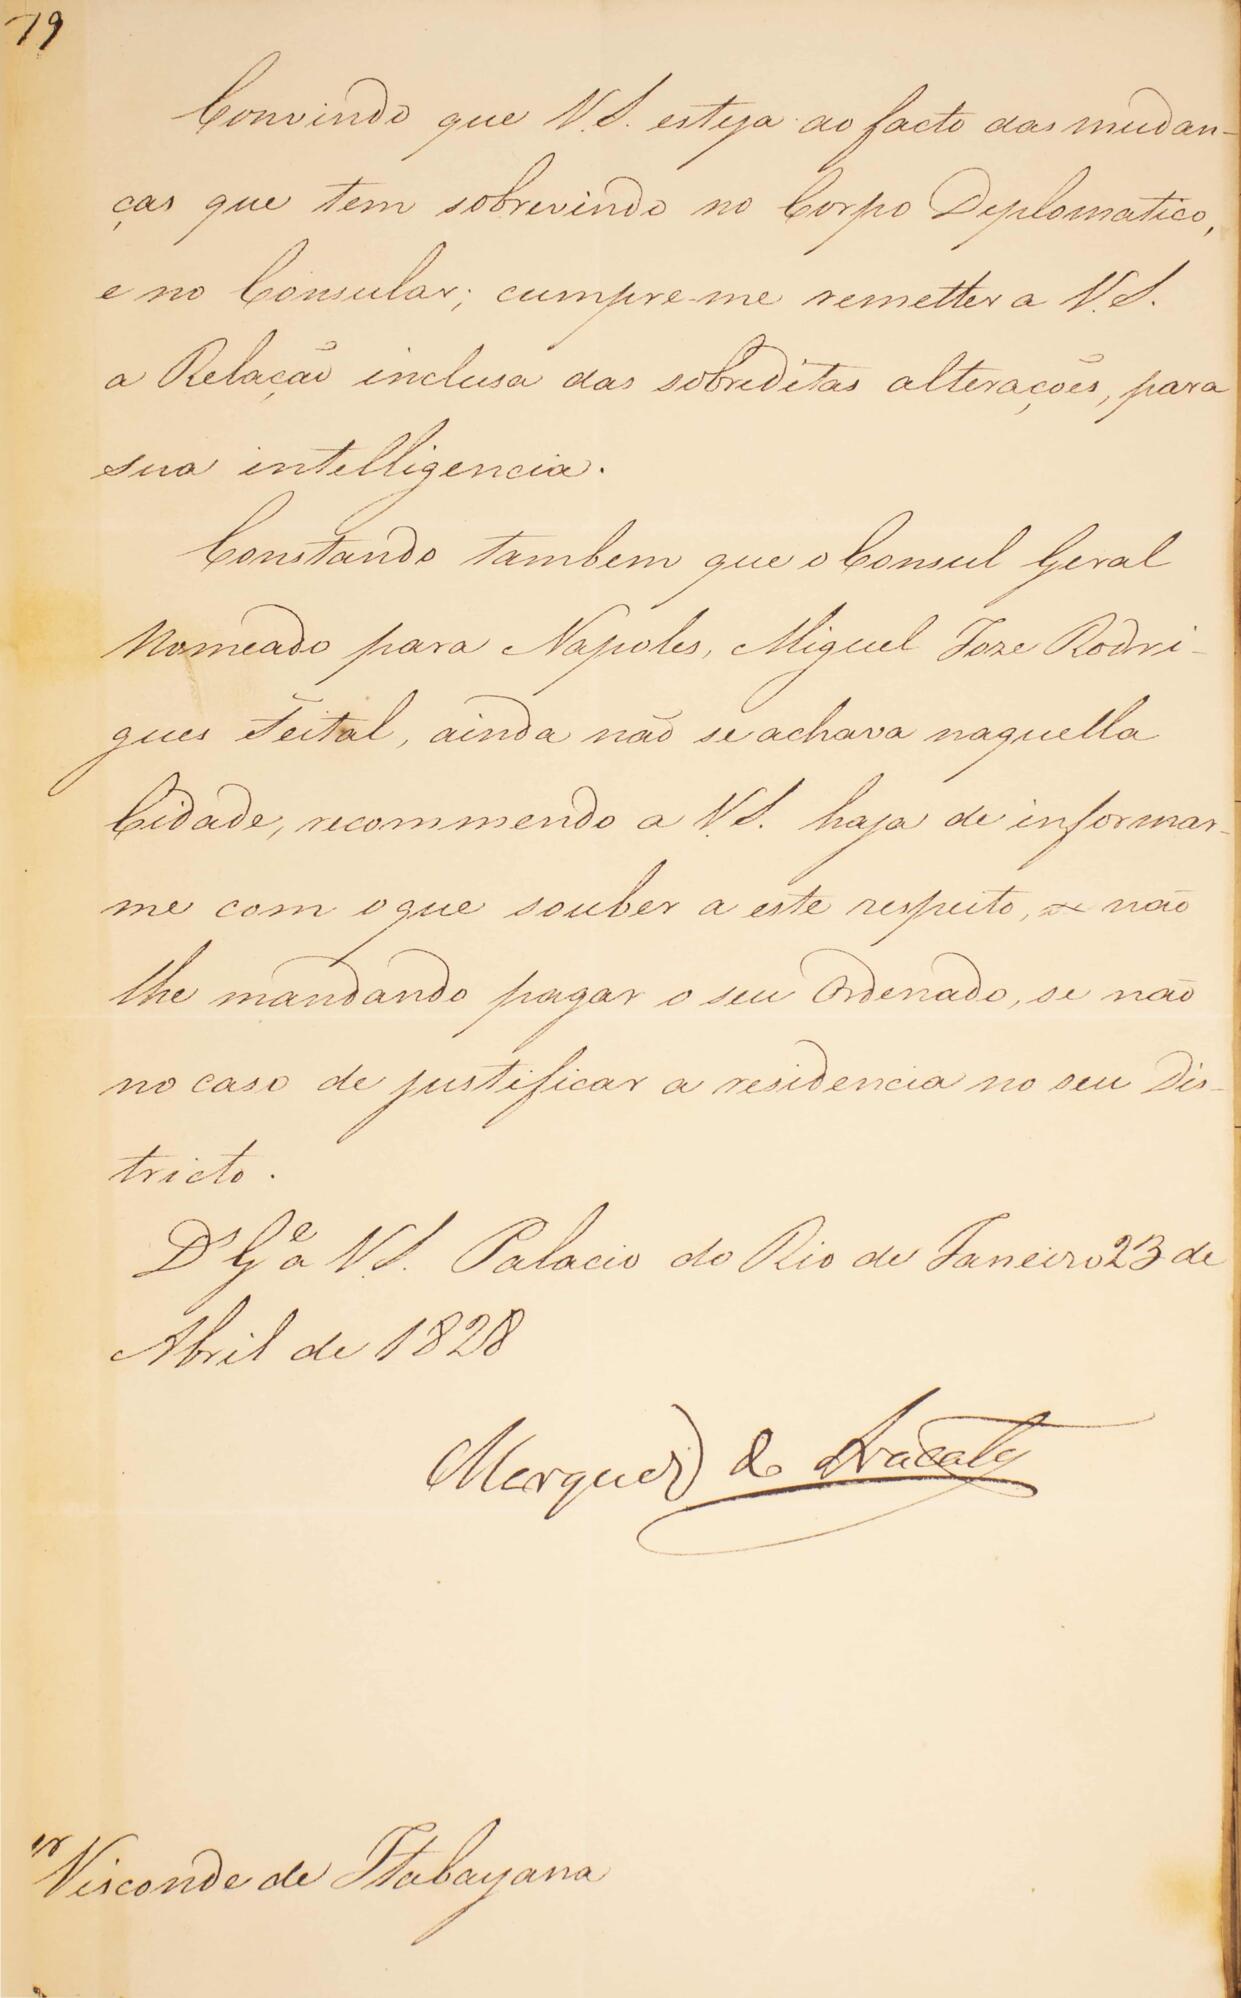 79
Convindo que V.S. esteja ao facto das mudan-
ças que tem sobrevindo no Corpo Deplomatico,
e no Consular; cumpre-me remetter a V.S.
a Relação inclusa das sobreditas alterações, para
sua intelligencia.
Constando tambem que o Consul Geral
Nomeado para Napoles, Miguel Joze Rodri-
gues Feital, ainda não se achava naquella
Cidade, recommendo a V.S. haja de informar-
me com o que souber a este respeito, não
lhe mandando pagar o seu Ordenado, se não
no caso de justificar a residencia no seu Dis-
tricto.
Ds Ge a V.S. Palacio do Rio de Janeiro 23 de
Abril de 1828
Marquez de Aracaty
Visconde de Itabayana